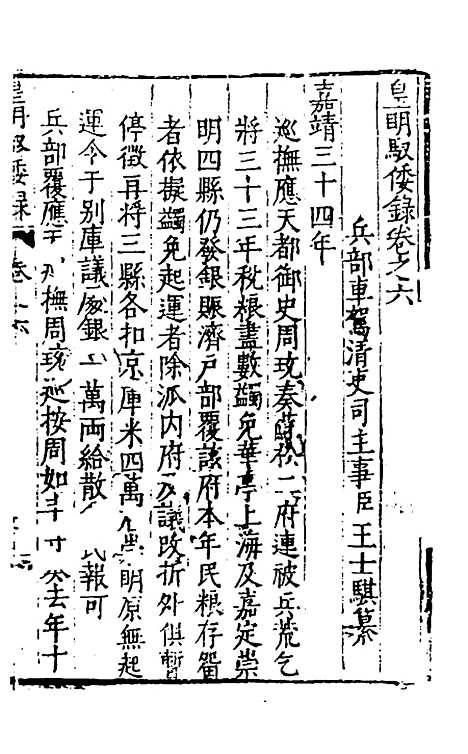 皇明馭倭錄卷之六
兵部車駕清吏司主事臣王士騏纂
嘉靖三十四年
巡撫應天都御史周珫奏蘇松二府連被兵荒乞
將三十三年稅粮盡數蠲免華亭上海及嘉定崇
明四縣仍發銀賑濟戶部覆該府本年民粮存留
者依擬蠲免起運者除派內府及議改折外俱暫
停徵再將三縣各扣京庫米四萬 明原無起
運令于別庫議處銀一萬両給散 報可
兵部覆應 巡撫周珫巡按周如斗 去年十
皇明馭倭錄 卷六